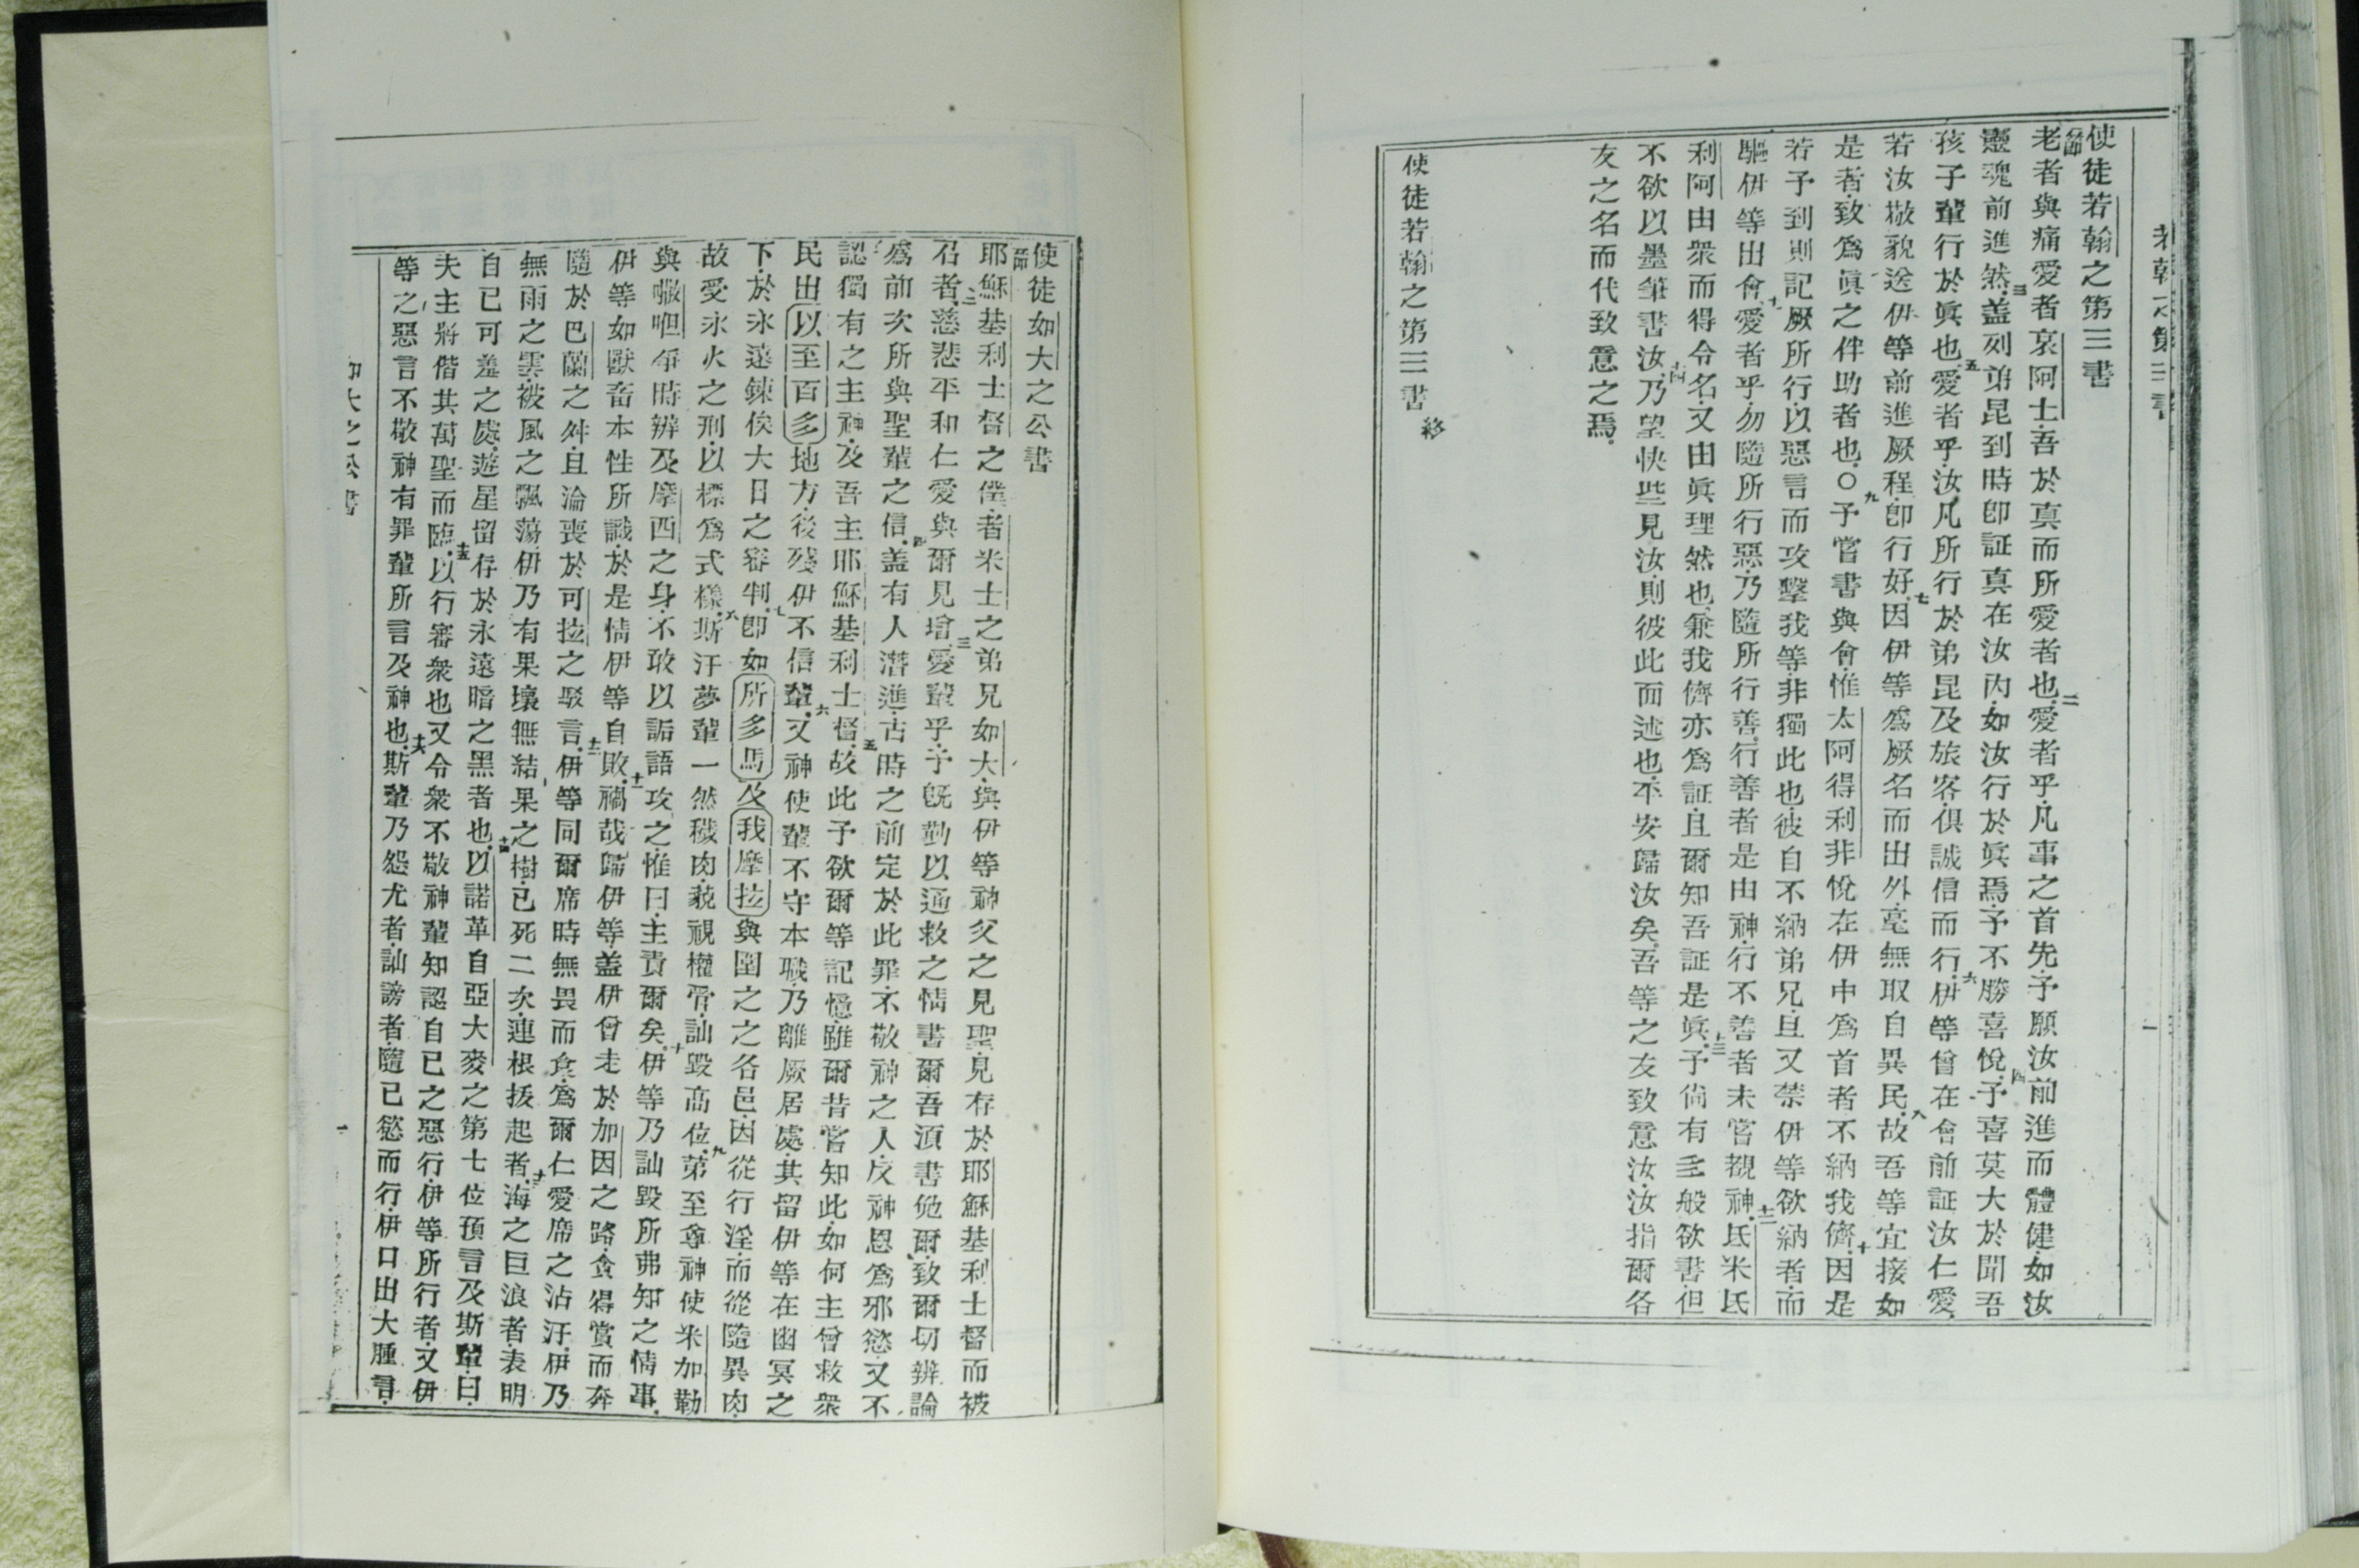 使徒若翰之第三書
老者與痛愛者哀阿士.吾於真而所愛者也.二愛者乎.凡事之首先.予願汝前進而體健.如汝
靈魂前進然.三盖列弟昆到時卽証真在汝內.如汝行於眞焉.予不勝喜悅.四予喜莫大於聞吾
孩子輩行於眞也.五愛者乎.汝凡所行於弟昆及旅客.俱誠信而行.六伊等曾在會前証汝仁愛.
若汝敬貌送伊等前進厥程.卽行好.七因伊等爲厥名而出外.毫無取自異民.八故吾等宜接如
是者.致爲眞之伴助者也.○九予嘗書與會.惟太阿得利非悅在伊中爲首者不納我儕.十因是
若予到則記厥所行.以惡言而攻擊我等.非獨此也.彼自不納弟兄.且又禁伊等欲納者.而
驅伊等出會.十一愛者乎勿隨所行惡.乃隨所行善.行善者是由神.行不善者未嘗覩神.十二氐米氐
利阿由衆而得令名.又由眞理然也.兼我儕亦爲証.且爾知吾証是眞.十三予尙有多般欲書.但
不欲以墨筆書汝.十四乃望快些見汝.則彼此面述也.平安歸汝矣.吾等之友致意汝.汝指爾各
友之名而代致意之焉.
使徒若翰之第三書 終
使徒如大之公書
耶穌基利士督之僕.者米士之弟兄如大.與伊等神父之見聖.見存於耶穌基利士督而被
召者.二慈悲平和仁愛與爾見增.三愛輩乎.予旣勤以通救之情書爾.吾須書勉爾.致爾切辨論
爲前次所與聖輩之信.四盖有人潛進.古時之前定於此罪.不敬神之人.反神恩爲邪慾.又不
認獨有之主神.及吾主耶穌基利士督.五故此予欲爾等記憶.雖爾昔嘗知此.如何主曾救衆
民出以至百多地方.後殘伊不信輩.六又神使輩不守本職.乃離厥居處.其留伊等在幽冥之
下.於永遠鍊俟大日之審判.七卽如所多馬及我摩拉與圍之之各邑.因從行淫.而從隨異肉.
故受永火之刑.以標爲式樣.八斯汙夢輩一然穢肉.藐視權管.訕毀高位.九第至尊神使米加勒
與𠹌呾爭時辨及摩西之身.不敢以詬語攻之.惟曰.主責爾矣.十伊等乃訕毀所弗知之情事.
伊等如獸畜本性所識.於是情伊等自敗.十一禍哉歸伊等.盖伊曾走於加因之路.貪得賞而奔
隨於巴蘭之舛.且淪喪於可拉之駁言.十二伊等同爾席時無畏而食.爲爾仁愛席之沾汙.伊乃
無雨之雲.被風之飄蕩.伊乃有果壞無結果之樹.已死二次.連根拔起者.十三海之巨浪者.表明
自己可羞之處.遊星留存於永遠暗之黑者也.十四以諾革自亞大麥之第七位預言及斯輩曰.
夫主將偕其萬聖而臨.十五以行審衆也.又令衆不敬神輩知認自己之惡行.伊等所行者.又伊
等之惡言不敬神有罪輩所言及神也.十六斯輩乃怨尤者.訕謗者.隨己慾而行.伊口出大腫言.
如大之公書
一